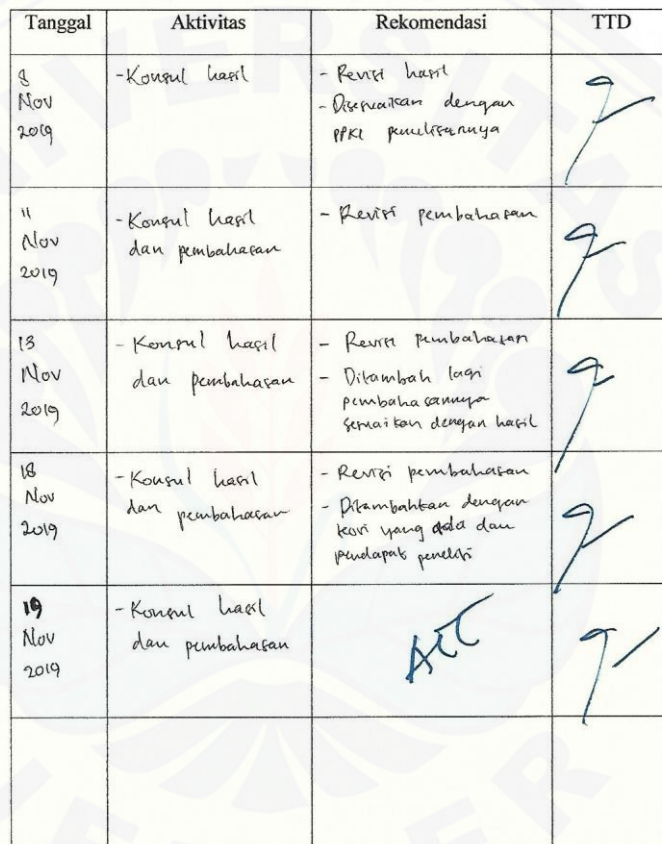 Tanggal Aktivitas Rekomendasi TTD
8
Nov
2019
- Konsul hasil
- Revisi hasil
- Disesuaikan dengan
PPKI penulisannya
11
Nov
2019
- Konsul hasil
dan pembahasan
- Revisi pembahasan
13
Nov
2019
- Konsul hasil
dan pembahasan
- Revisi pembahasan
- Ditambah lagi
pembahasannya
sesuaikan dengan hasil
18
Nov
2019
- Konsul hasil
dan pembahasan
- Revisi pembahasan
- Ditambahkan dengan
teori yang ada dan
pendapat peneliti
19
Nov
2019
- Konsul hasil
dan pembahasan
ACC
UNIVERSITAS
JEMBER